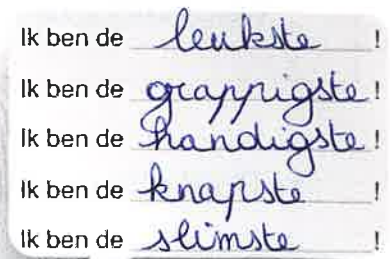 Ik ben de leukste !
Ik ben de grappigste !
Ik ben de handigste !
Ik ben de knapste !
Ik ben de slimste !